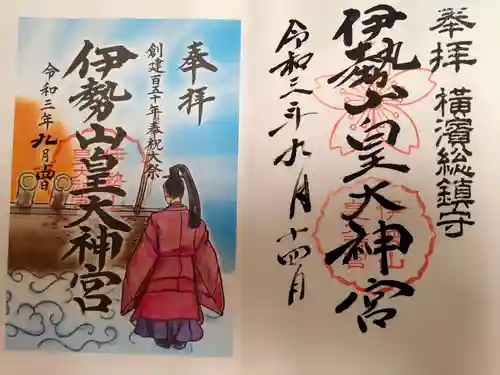 奉拝
横濱総鎮守
伊勢山皇大神宮
令和三年九月十四日
奉拝
創建百五十年奉祝大祭
伊勢山皇大神宮
令和三年九月十四日